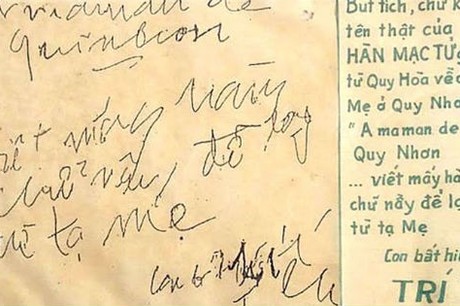 maman de
Quinhon
viết mấy hàng
chữ nầy, để lạy
từ tạ mẹ
con bất hiếu
Bút tích, chữ k
tên thật của
HÀN MẠC TỬ
từ Quy Hòa về c
Mẹ ở Quy Nhơ
" A maman de
Quy Nhơn
... viết mấy hà
chữ nầy để lạ
từ tạ Mẹ
Con bất hi
TRÍ